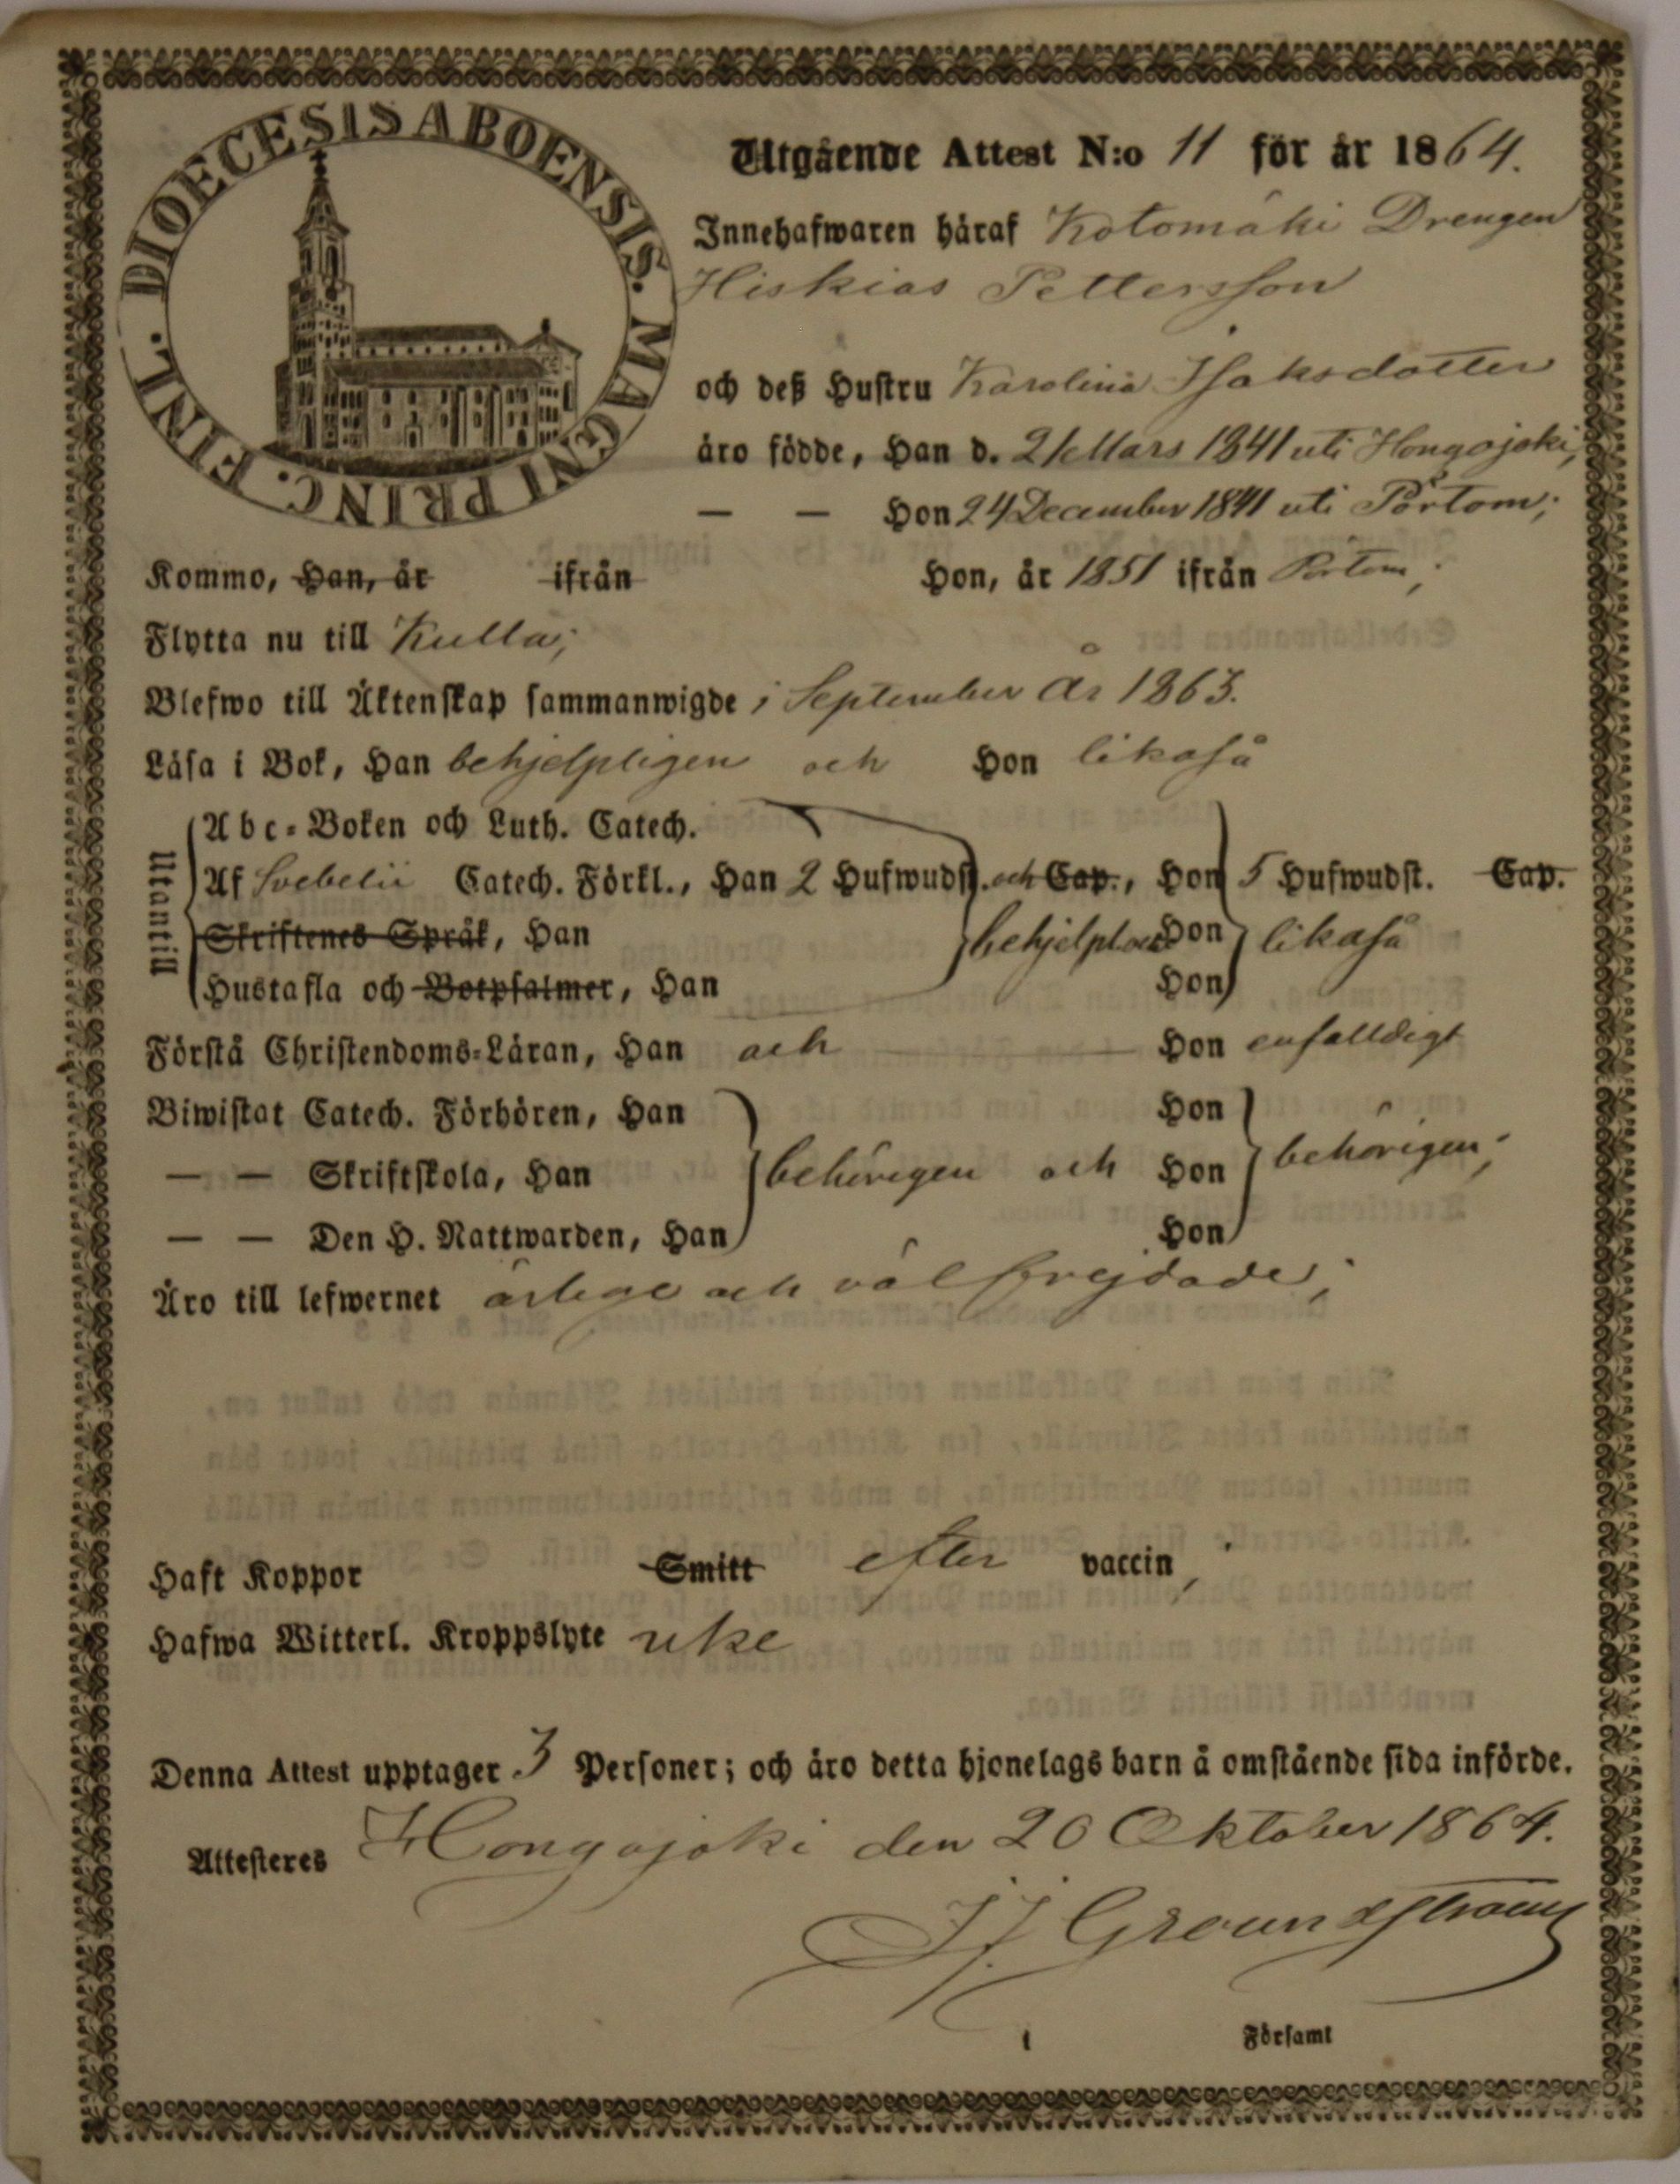 DIOECESIS ABOENSIS. MAGNI PRINC. FINL.
Utgående Attest N:o 11 för år 1864.
Innehafwaren häraf Kotomäki Drengen
Hiskias Pettersson
och deß Hustru Karolina Isaksdotter
äro födde, Han d. 21 Mars 1841 uti Hongojoki,
— — Hon 24 December 1841 uti Pörtom;
Kommo, Han, år ifrån Hon, år 1851 ifrån Pörtom;
Flytta nu till Kulla;
Blefwo till Äktenskap sammanwigde i September år 1863.
Läsa i Bok, Han behjelpligen och Hon likaså
Utantill
Abc-Boken och Luth. Catech.
Af Svebelii Catech. Förkl., Han 2 Hufwudst. och Cap., Hon 5 Hufwudst. Cap.
Skriftenes Språk, Han behjelpl. och Hon likaså
Hustafla och Botpsalmer, Han Hon
Förstå Christendoms-Läran, Han och Hon enfalldigt
Biwistat Catech. Förhören, Han Hon
— — Skriftskola, Han behörigen och Hon behörigen;
— — Den H. Nattwarden, Han Hon
Äro till lefwernet ärlige och väl frejdade;
Haft Koppor Smitt efter vaccin;
Hafwa Witterl. Kroppslyte icke
Denna Attest upptager 3 Personer; och äro detta hjonelags barn å omstående sida införde.
Attesteres Hongojoki den 20 Oktober 1864.
J J Groundstroem
Församl